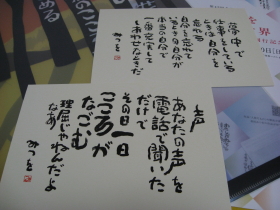 夢中で
仕事をしている
ときは自分を
忘れる
自分を忘れて
いるときの自分が
一番充実して
しあわせなときだ
みつを
声
あなたの声を
電話で聞いた
だけで
その日一日
こころが
なごむ
理屈じゃねんだよ
なあ
みつを
界